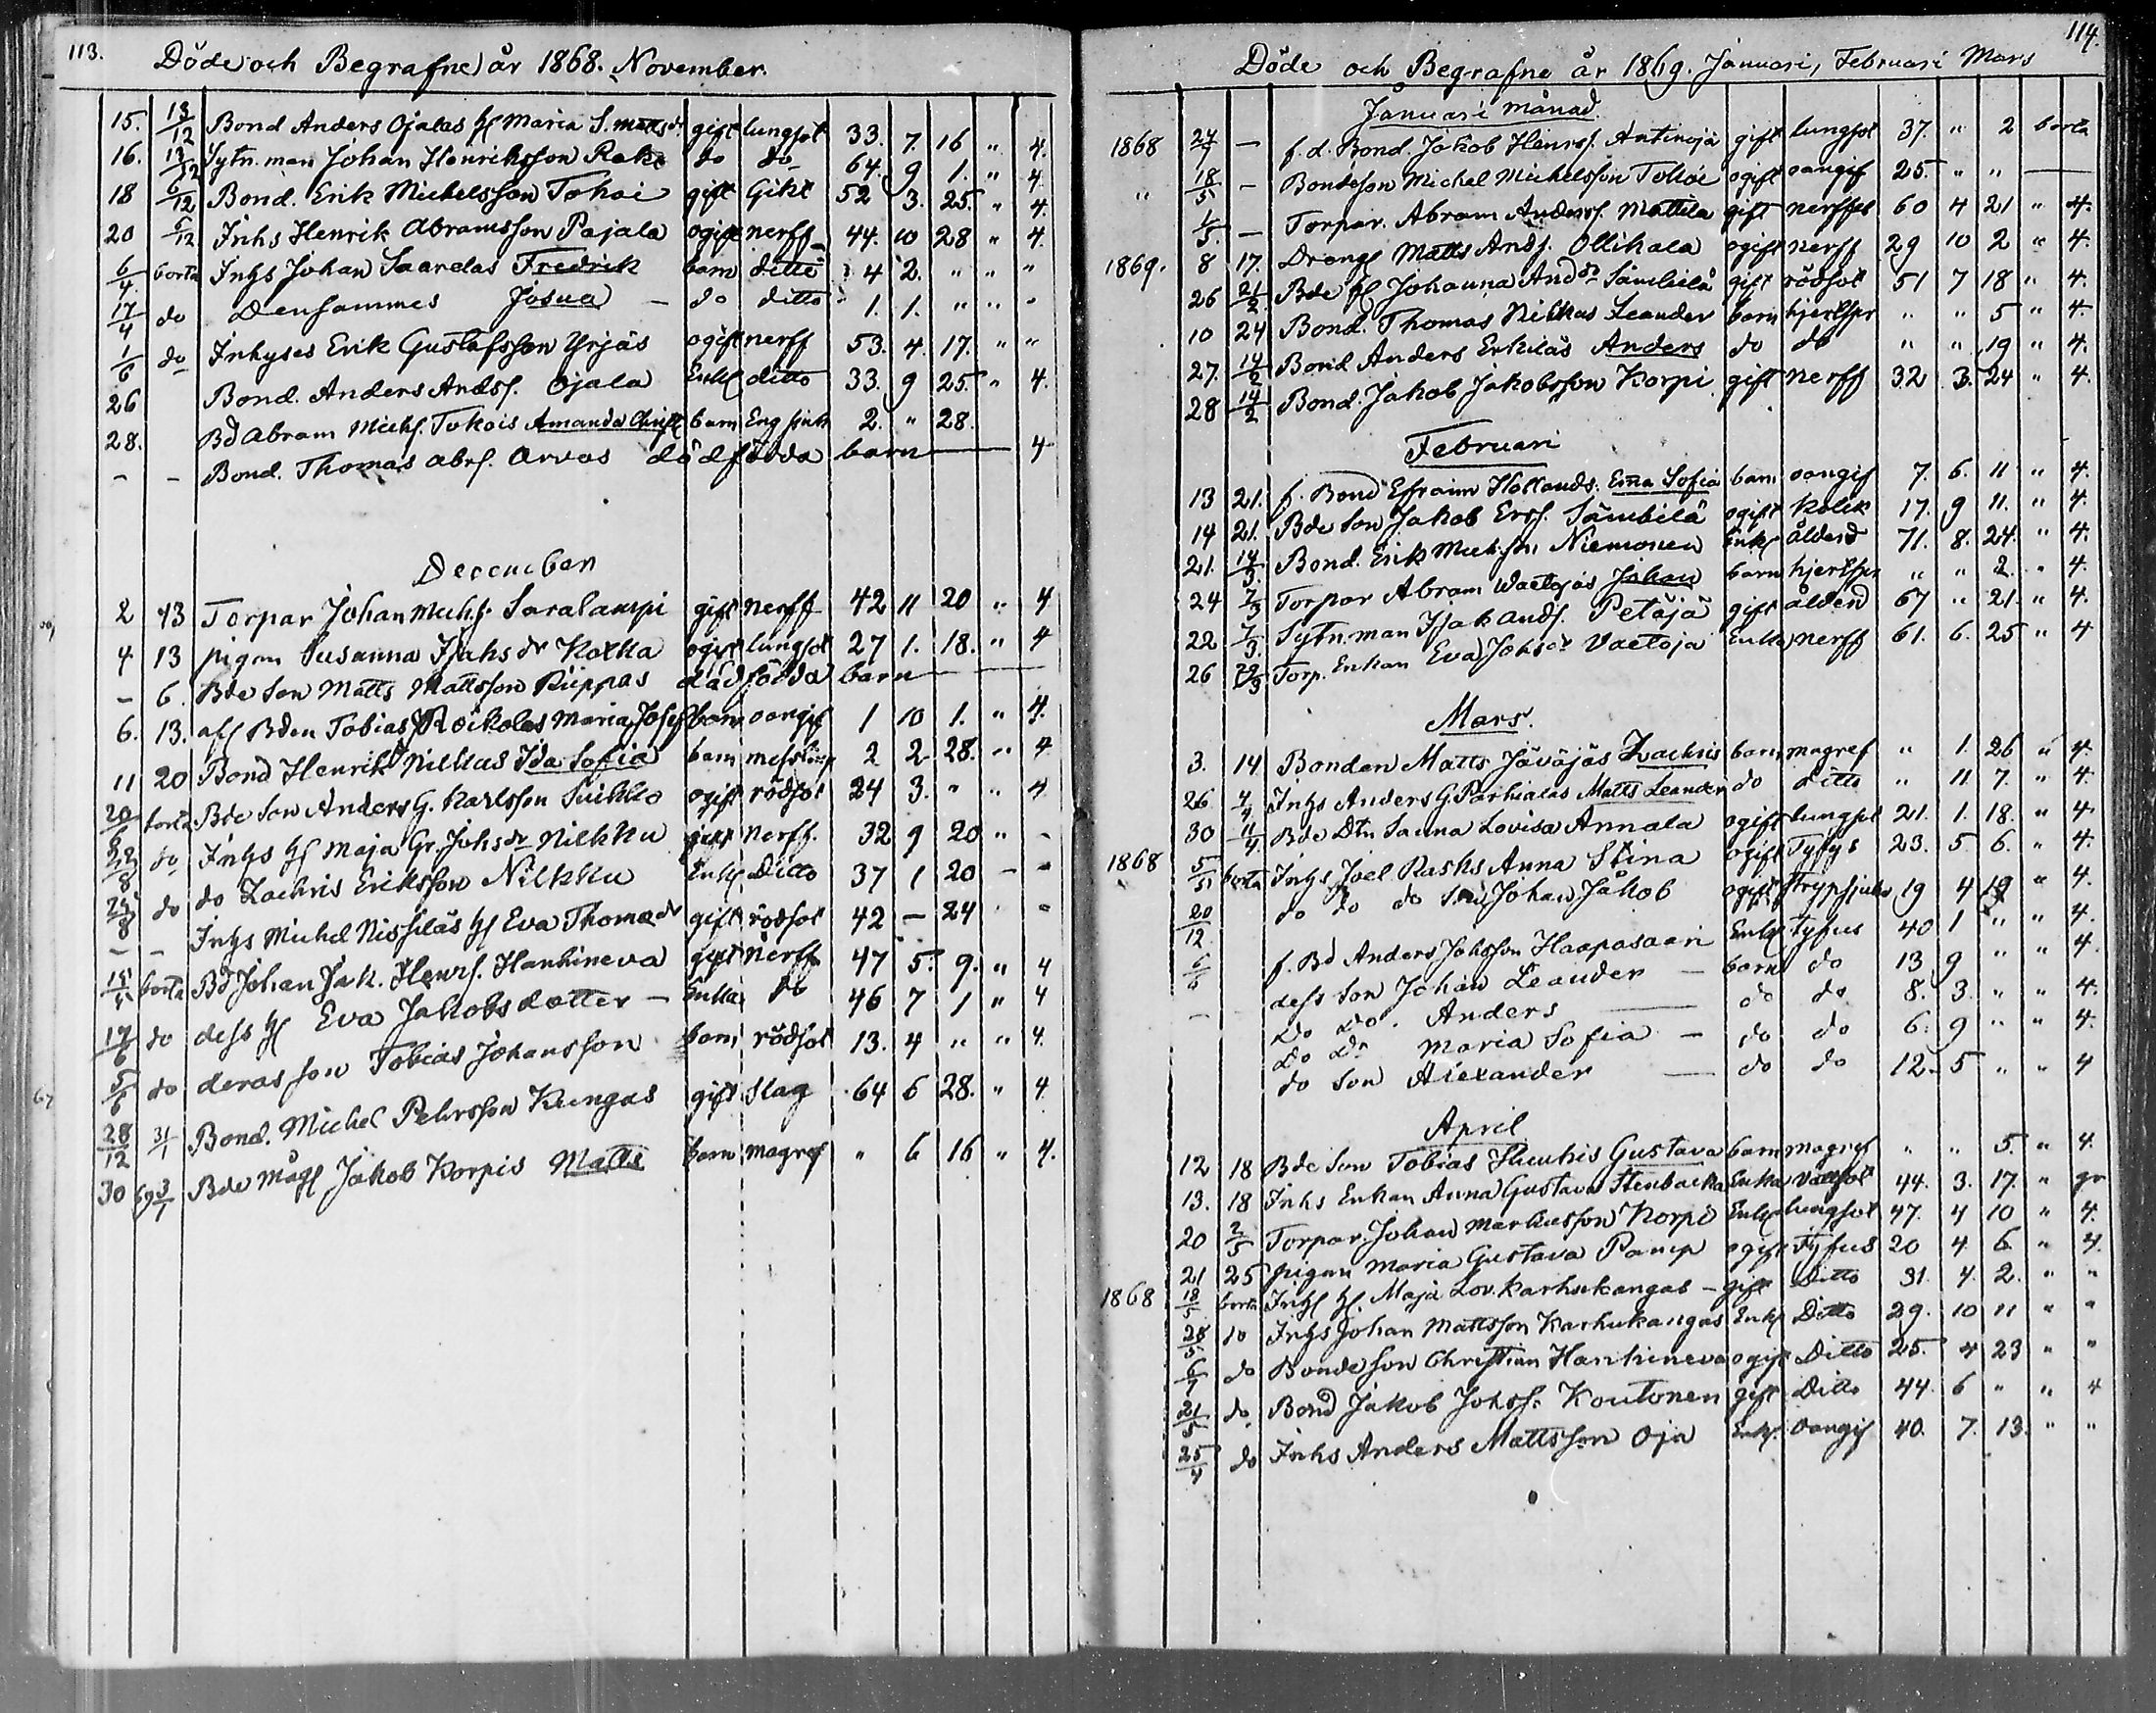 113.
Döde och Begrafne år 1868. November.
15. 13/12 Bond Anders Ojalas H Maria S. Mattsdr gift lungsot 33. 7. 16 " 4.
16. 13/12 Sytn.man Johan Henriksson Rake do do 64. 9 1. " 4
18 6/12 Bond. Erik Michelsson Tokoi gift Gikt 52 3. 25. " 4.
20 6/12 Inhs Henrik Abramsson Pajala ogift nerff 44. 10 28 " 4.
6/4 borta Inhs Johan Saarelas Fredrik barn ditto 4 2. " " "
17/4 do Densammes Josua — do ditto 1. 1. " " "
1/6 do Inhyses Erik Gustafsson Yrjäs ogift nerff 53. 4. 17. " "
26 Bond. Anders Andsf. Ojala Enkl ditto 33. 9 25. " 4.
28. Bd Abram Michs. Tokois Amanda barn Eng sjuk 2. " 28.
- - Bond. Thomas Abrs. Arvas dödfödda barn — 4
December
2 13 Torpar Johan Michs. Saralampi gift nerff 42 11 20 " 4
4 13 pigan Susanna Isaksdr Kotka ogift lungsot 27 1. 18. " 4
- 6. Bde Son Matts Mattsson Rieppas dödfödda barn
6. 13. afl Bden Tobias Roikolas Maria Josef barn oangif 1 10 1. " 4.
11 20 Bond Henrik Nikkus Ida Sofia barn 2 2 28. " 4
20/6 borta Bde Son Anders G. Karlsson ogift rödsot 24 3. " " 4
22/8 do Inhs H Maja Gr. Johsdr Nilkku gift nerff. 32 9 20 " -
24/8 do do Zachris Eriksson Nilkku Enkl Ditto 37 1 20 - "
- - Inhs Michel Nissiläs H Eva Thomadr gift rödsot 42 — 24 "
15/5 borta Bd Johan Jak. Henrs. Hanhineva gift nerff 47 5. 9. " 4
17/6 do dess H Eva Jakobsdotter — Enka do 46 7 1 " 4
5/6 do deras son Tobias Johansson barn rödsot 13. 4 " " 4.
28/12 31/1 Bond. Michel Pehrsson Kungas gift Slag 64 6 28. " 4.
30 69 3/1 Bde mågl Jakob Korpis Matts barn magref " 6 16 " 4.
114.
Döde och Begrafne år 1869. Januari, Februari Mars
Januari månad.
1868 24/7 — f.d. Bond. Jakob Henrs. Antinoja gift lungsot 37. " 2 borta
" 18/5 - Bondeson Michel Michelsson Tokoi ogift oangif 25. " " —
1/5. — Torpar. Abram Anderss. Mattila gift nerffeb 60 4 21 " 4.
1869. 8 17. Drengl Matts Ands. Ollikala ogift nerff 29 10 2 " 4.
26 21/2 Bde H Johanna Anddr Sämbilä gift rödsot 51 7 18 " 4.
10 24 Bond. Thomas Nikkus Leander barn hjertspr " " 5 " 4
27. 14/2 Bond Anders Erkiläs Anders do do " " 19 " 4.
28 14/2 Bond. Jakob Jakobsson Korpi gift nerff 32 3. 24 " 4.
Februari
13 21. f. Bond Efraim Hollands. Ema Sofia barn oangif 7. 6. 11 " 4.
14 21. Bde Son Jakob Erss. Sämbilä ogift kolik 17. 9 11. " 4.
21. 14/3. Bond. Erik Mich.son Niemonen Enkl ålderd 71. 8. 24. " 4.
24 7/3 Torpar Abram Waetojas Johan barn hjertspr " " 2. " 4.
22 7/3. Sytn.man Isak Ands. Petäjä gift ålderd 67 " 21. " 4.
26 29/3 Torp. Enkan Eva Johsdr Vaetoja Enka nerff 61. 6. 25 " 4
Mars.
3. 14 Bonden Matts Jäväjäs Zachris barn magref " 1. 26 " 4.
26 4/4 Inhs Anders G. Parhialas Matts Leander do ditto " 11 7. " 4.
30 11/4 Bde Dtn Sanna Lovisa Annala ogift lungsot 21. 1. 18. " 4.
1868 5/5 borta Inhs Joel Rasks Anna Stina ogift Tyfys 23. 5 6. " 4.
20/12. do do do Son Johan Jakob ogift strypsjuka 19 4 19 " 4.
6/6 f. Bd Anders Johsson Haapasaari Enkl tyfus 40 1 " " 4.
dess son Johan Leander — barn do 13 9 " " 4.
- Do Do. Anders — do do 8. 3. " " 4.
Do Dr Maria Sofia — do do 6. 9 " " 4.
do Son Alexander — do do 12. 5 " " 4
April
12 18 Bde Son Tobias Gustava barn magref " " 5. " 4.
13. 18 Inhs Enkan Anna Gustava Stenbacka Enka vattsot 44. 3. 17. " gr
20 2/5 Torpar. Johan Markusson Korpi Enkl lungsot 47. 4 10 " 4.
21 25 pigan Maria Gustava Pamp ogift Tyfus 20 4 6 " 4.
1868 18/5 borta Inhs H. Maja Lov. Karhukangas - gift Ditto 31. 4. 2. " "
28/5 do Inhs Johan Mattsson Karhukangas Enkl Ditto 29. 10 11 " "
6/7 do Bonde Son Christian Hanhineva ogift Ditto 25. 4 23 " "
21/5 do. Bond Jakob Johss. Koutonen gift Ditto 44. 6 " " 4
25/4 do Inhs Anders Mattsson Oja Enkl. Oangif 40. 7. 13. " "